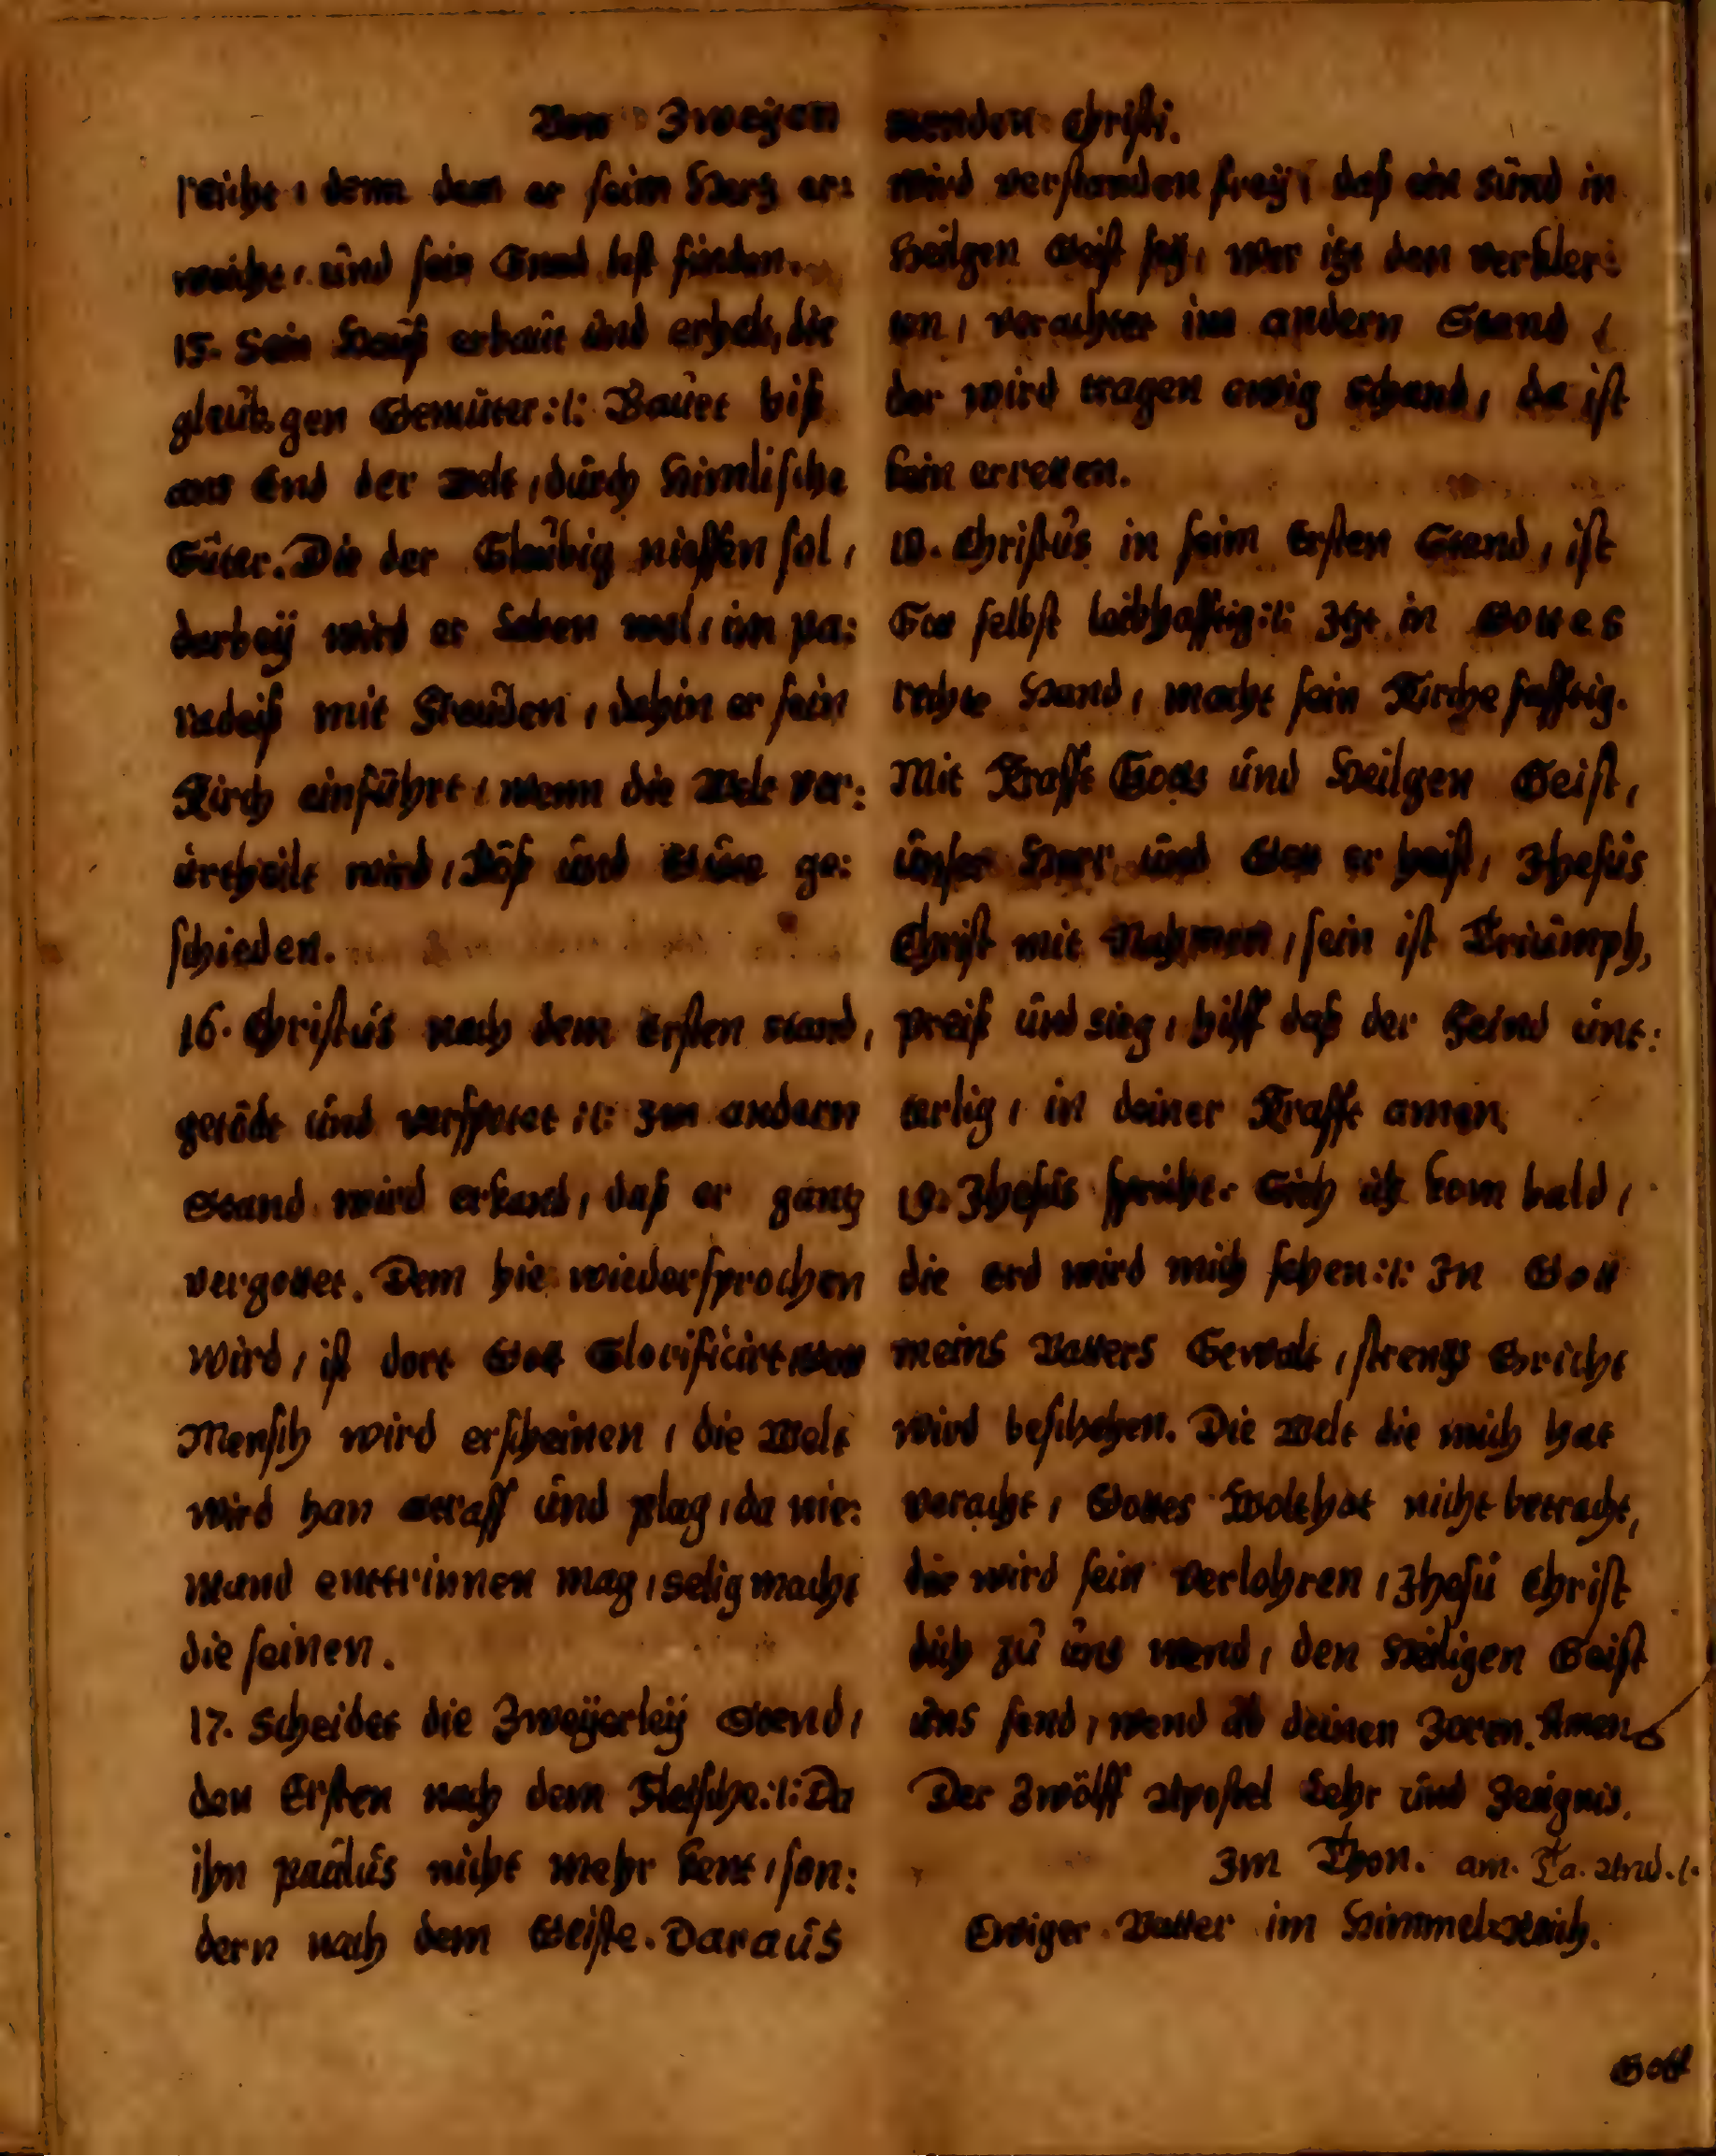 Von Zweyen
reicht, denn dem er seim Hertz er:
weicht, und sein Gnad lest finden.
15. Sein Hauß erbaut und erhelt, die
gleubgen Gemüter:l: Bauet biß
ans End der Welt, durch Himlische
Güter. Die der Gläubig niessen sol,
darbey wird er Leben wol, im pa:
radeiß mit Freuden, dahin er sein
Kirch einführt, wenn die Welt ver:
urtheilt wird, Böß und Gute ge:
schieden.
16. Christus nach dem Ersten stand,
getödt und verspotet :l: Im andern
Stand wird erkand, daß er gantz
vergottet. Dem hie wiedersprochen
wird, ist dort Gott Glorificirt,
Mensch wird erscheinen, die Welt
wird han Straff und plag, da nie:
mand enttrinnen mag, selig macht
die seinen.
17. Scheidet die Zweyerley Stend,
den Ersten nach dem Fleische:l: Da
ihn paulus nicht mehr kent, son:
dern nach dem Geiste. Daraus
stenden Christi.
wird verstanden frey, daß ein Sünd in
Heilgen Geist sey, wer itzt den verkler:
ten, verachtet im andern Stand,
der wird tragen ewig schand, da ist
kein erretten.
18. Christus in seim Ersten Stand, ist
Gott selbst leibhafftig:l: Itzt in Gottes
rechte Hand, macht sein Kirche safftig.
Mit Krafft Gotts und Heilgen Geist,
unser Herr und Gott er heist, Jhesus
Christ mit Nahmen, sein ist Triumph,
preiß und sieg, hilff daß der Feind unt:
terlig, in deiner Krafft amen.
19. Jhesus spricht. Sich ich kom bald,
die Erd wird mich sehen:l: In Gott
meins Vatters Gewalt, strengs Gricht
wird beschehen. Die Welt die mich hat
veracht, Gottes Wolthat nicht betracht,
die wird sein verlohren, Jhesu Christ
dich zu uns wend, den Heiligen Geist
uns send, wend ab deinen Zoren. Amen
Der Zwölff Apostel Lehr und Zeugnis.
Im Thon. am. Ta. And. l.
Ewiger Vatter im Himmelreich.
Gott